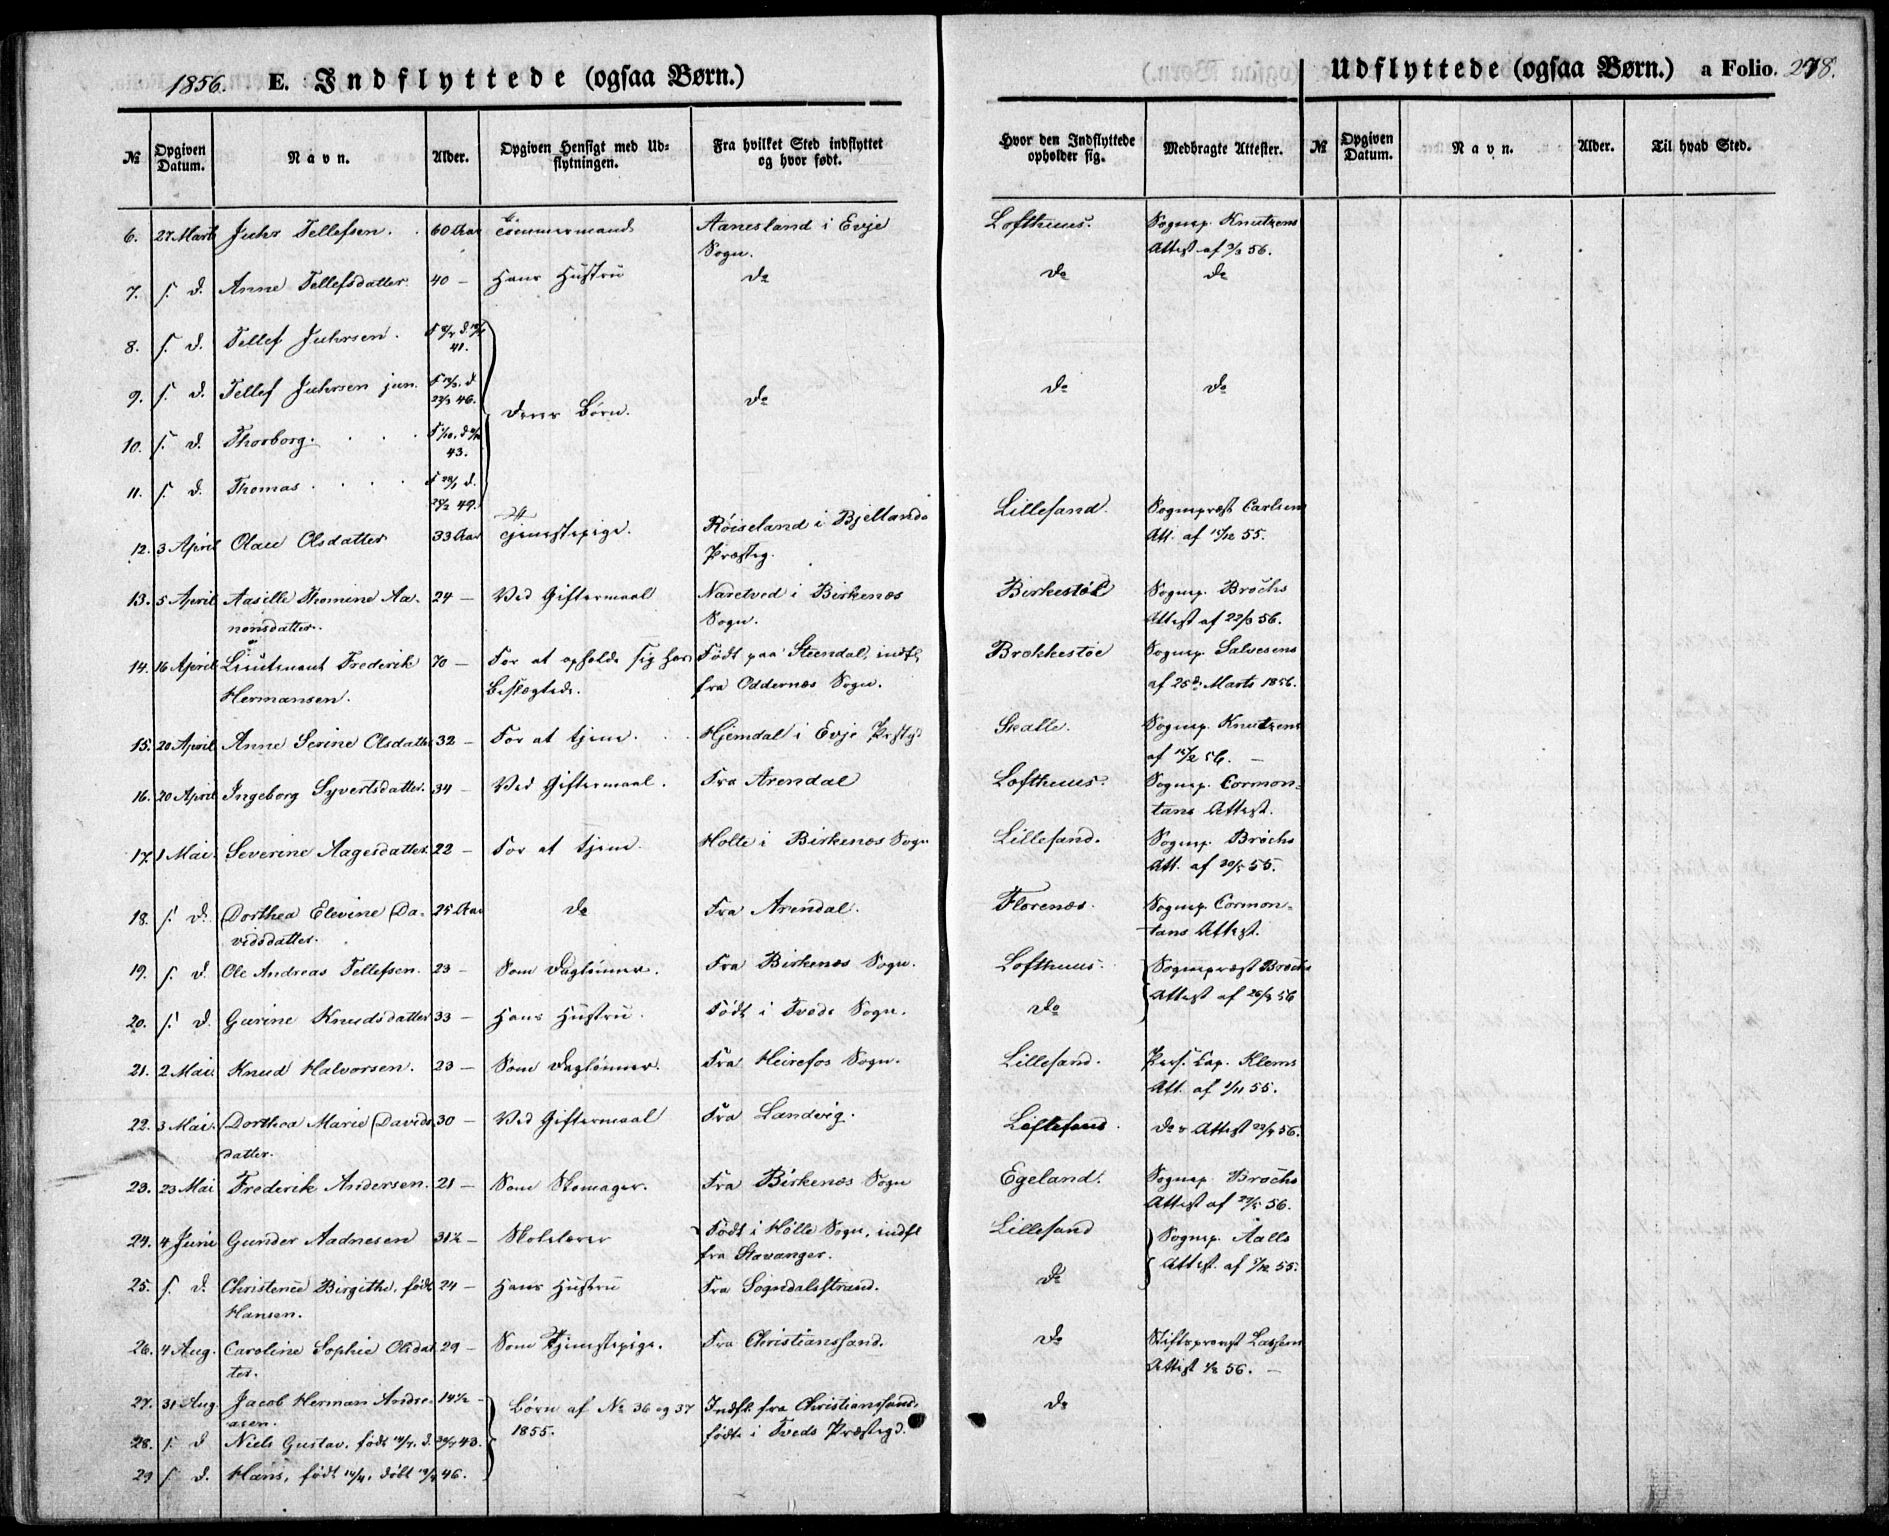 1856. E. Indflyttede (ogsaa Børn.)
Udflyttede (ogsaa Børn.) a Folio. 278.
№ Opgiven Datum. Navn. Alder. Opgiven Hensigt med Udflytningen. Fra hvilket Sted indflyttet og hvor født. Hvor den Indflyttede opholder sig. Medbragte Attester. № Opgiven Datum. Navn. Alder. Til hvad Sted.
6. 27 Marts Juhr Tellefsen. 60 Aar Tømmermand Aanesland i Evje Lofthuus. Sognep. Knutzens
Sogn. Attest af 3/3 56.
7. s. d. Anne Tellefsdatter. 40 – Hans Hustru do do do
8. s. d. Tellef Juhrsen.
41.
9. s. d. Tellef Juhrsen jun. do do do
46.
Deres Børn.
10. s. d. Thorborg.
43.
11. s. d. Thomas
49.
12. 3 April Olau Olsdatter 33 Aar Tjenestepige. Røiseland i Bjellands Lillesand. Sognepræst Carlsens
Præsteg. Att. af 55.
13. 5 April Aasille Thomine Aa- 24 – Ved Giftermaal Naretved i Birkenæs Birkestøl Sognep. Brochs
nonsdatter. Sogn. Attest af 22/3 56.
14. 16 April Lieutenant Frederik 70 – For at opholde sig hos Født paa Steendal, indfl. Brækkestøe Sognep. Salvesens
Hermansen. Beslægtede. fra Oddernæs Sogn. af 25de Marts 1856.
15. 20 April Anne Serine Olsdatter 32 – For at tjene. Hjemdal i Evje Præstgd Skalle. Sognep. Knutzens
af 56. –
16. 20 April Ingeborg Syvertsdatter. 34 – Ved Giftermaal. Fra Arendal Lofthuus. Sognep. Cormon-
tans Attest.
17. 1 Mai. Severine Aagesdatter. 22 – For at tjene. Holte i Birkenæs Sogn Lillesand. Sognep. Brochs
Att. af 20/5 55.
18. s. d. Dorthea Elevine Da- 25 Aar do Fra Arendal. Florenæs. Sognep. Cormon-
vidsdatter. tans Attest.
19. s. d. Ole Andreas Tellefsen. 23 – Som Daglønner. Fra Birkenæs Sogn. Lofthuus. Sognepræst Brochs
Attest af 56
20. s. d. Gurine Knudsdatter 33 – Hans Hustru. Født i Tvede Sogn. do
21. 2 Mai. Knud Halvorsen. 23 – Som Daglønner. Fra Heirefos Sogn. Lillesand. Pers. Cap. Klems
Att. af 1/11 55.
22. 3 Mai. Dorthea Marie Davids 30 – Ved Giftermaal Fra Landvig. Lillesand. do Attest 56.
datter.
23. 23 Mai Frederik Andersen. 21 – Som Skomager. Fra Birkenæs Sogn Egeland. Sognep Brochs
Attest af 56.
24. 4 Juni Gunder Aadnesen 31½ – Skolelærer Født i Holle Sogn, indfl. Lillesand Sognep. Aalls
fra Stavanger. Attest. af 55.
25. s. d. Christence Birgithe, født 24 – Hans Hustru Fra Sogndalsstrand. do
Hansen.
26. 4 Aug. Caroline Sophie Olsdat 29 – Som Tjenestepige. Fra Christianssand. do Stiftsprovst Lassens
ter. Attest 56. –
27. 31 Aug. Jacob Herman Andre- 14½ – Børn af № 36 og 37 Indfl. fra Christianssand, do
asen. 1855. født i Tveds Præstegd.
28. s. d Niels Gustav. født 14/7. d. 43.
29 s. d. Hans, født døbt 46.